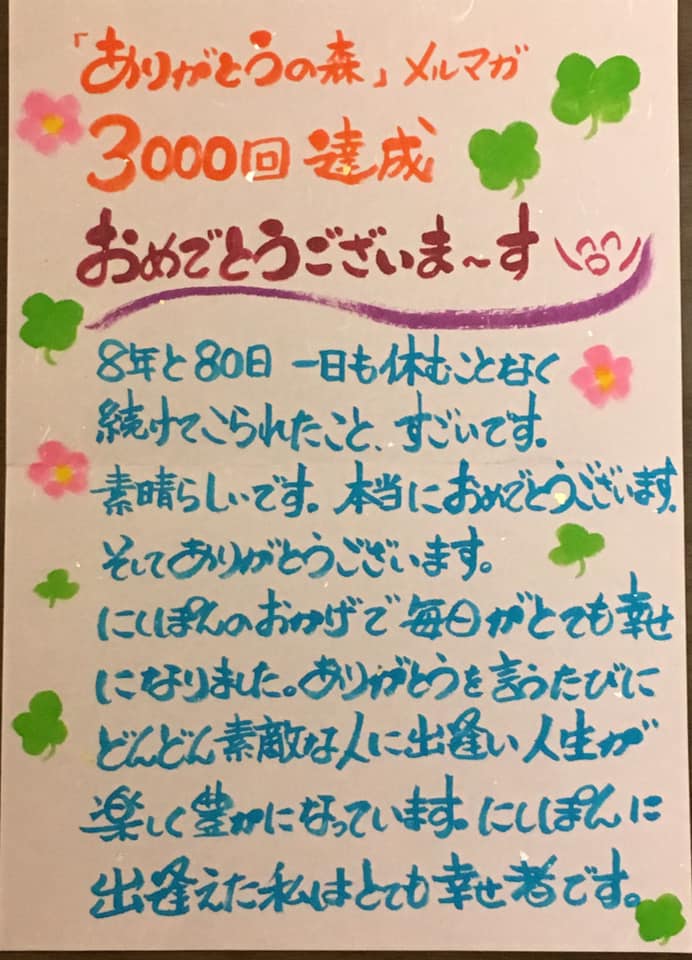 「ありがとうの森」メルマガ
3000回達成
おめでとうございま〜す
8年と80日 一日も休むことなく
続けてこられたこと、すごいです。
素晴らしいです。本当におめでとうございます。
そしてありがとうございます。
にしぽんのおかげで毎日がとても幸せ
になりました。ありがとうを言うたびに
どんどん素敵な人に出逢い人生が
楽しく豊かになっています。にしぽんに
出逢えた私はとても幸せ者です。